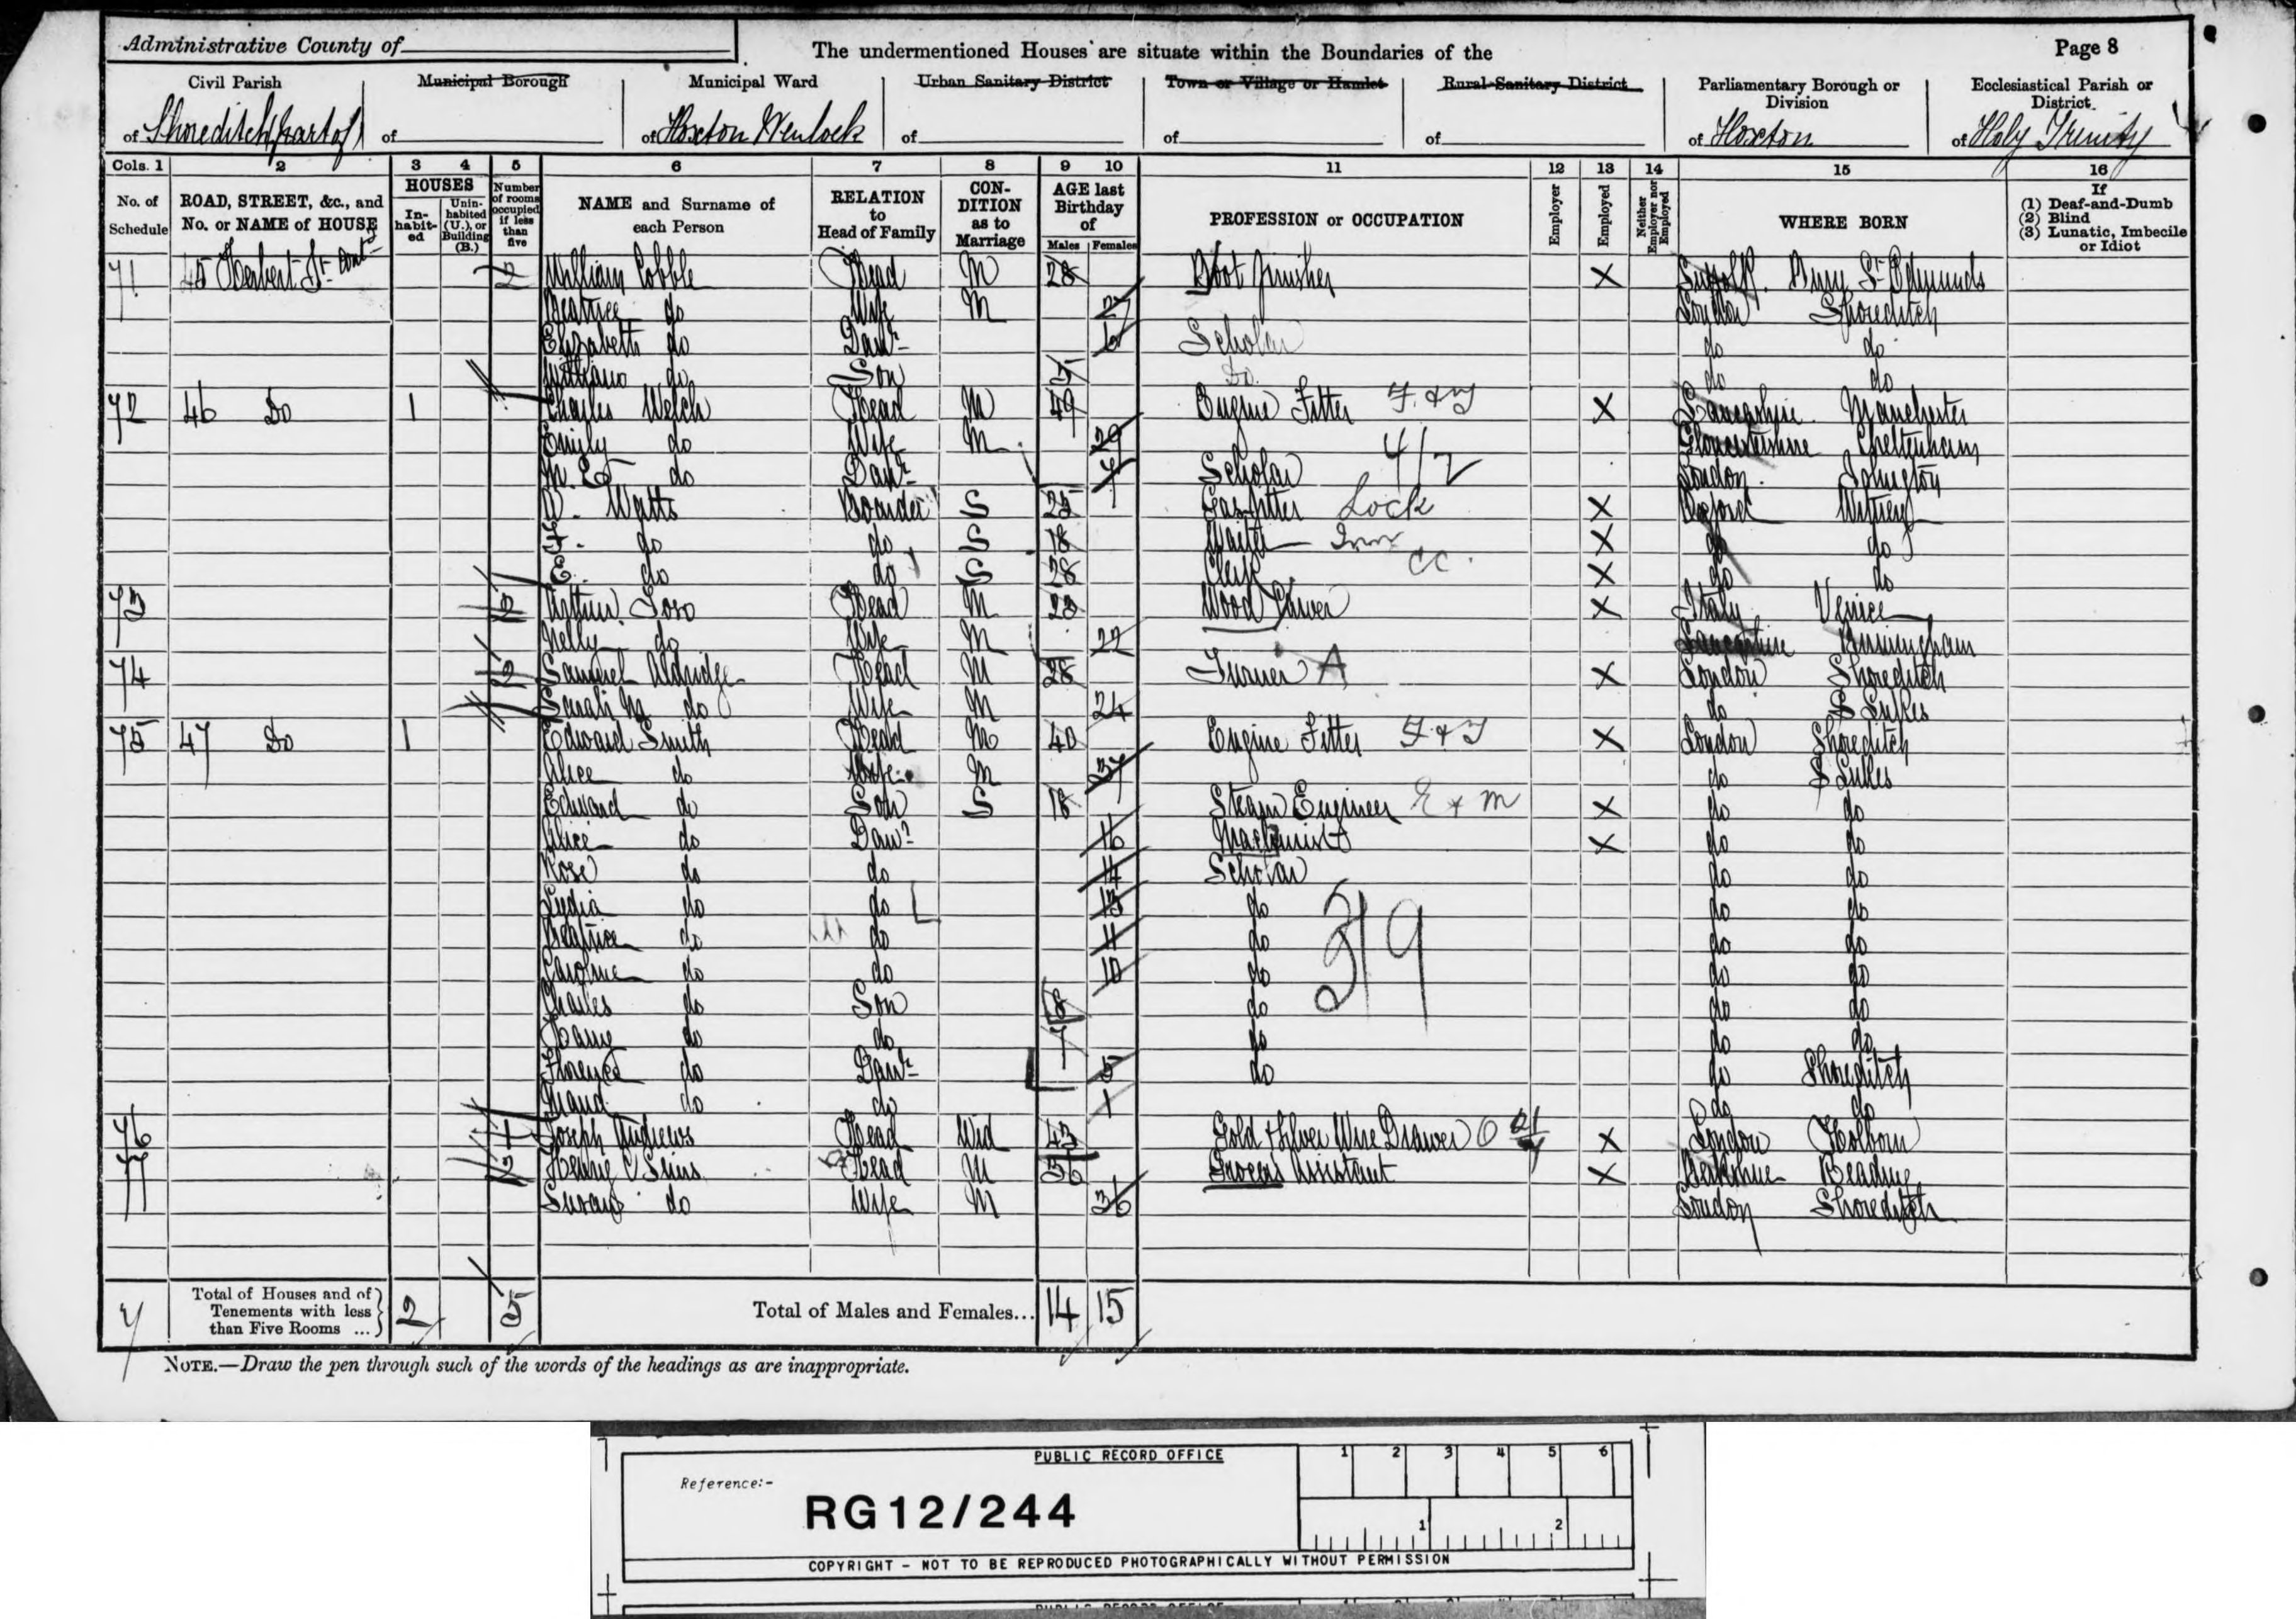 Administrative County of
The undermentioned Houses are situate within the Boundaries of the
Page 8
Civil Parish
Municipal Borough
Municipal Ward
Urban Sanitary District
Town or Village or Hamlet
Rural Sanitary District
Parliamentary Borough or Division
Ecclesiastical Parish or District
of Shoreditch (part of)
of
of Hoxton Wenlock
of
of
of
of Hoxton
of Holy Trinity
Cols. 1 2 3 4 5 6 7 8 9 10 11 12 13 14 15 16
No. of Schedule
ROAD, STREET, &c., and No. or NAME of HOUSE
HOUSES
In-habit-ed
Unin-habited (U.), or Building (B.)
Number of rooms occupied if less than five
NAME and Surname of each Person
RELATION to Head of Family
CON-DITION as to Marriage
AGE last Birthday of
Males Females
PROFESSION or OCCUPATION
Employer
Employed
Neither Employer nor Employed
WHERE BORN
If
(1) Deaf-and-Dumb
(2) Blind
(3) Lunatic, Imbecile or Idiot
71 45 Herbert St Contd 2 William Cobble Head M 28 Boot Finisher X Suffolk Bury St Edmunds
Beatrice do Wife M 27 London Shoreditch
Elizabeth do Daur 6 Scholar do do
William do Son 5 Do do do
72 46 Do 1 Charles Welch Head M 49 Engine Fitter F & T X Lancashire Manchester
Emily do Wife M 29 Gloucestershire Cheltenham
M. E do Daur 7 Scholar 4/2 London Islington
W. Watts Boarder S 25 Gasfitter Lock X Oxford Witney
F. do do S 18 Waiter Inn X do do
E. do do S 28 Clerk CC X do do
73 2 Arthur Head M 23 Wood X Italy Venice
Nelly do Wife M 22 Lancashire Birmingham
74 2 Samuel Aldridge Head M 28 Turner A X London Shoreditch
Sarah M do Wife M 24 do St Lukes
75 47 Do 1 Edward Smith Head M 40 Engine Fitter F & T X London Shoreditch
Alice do Wife M 37 do St Lukes
Edward do Son S 18 Steam Engineer E & M X do do
Alice do Daur 16 Machinist X do do
Rose do do 14 Scholar do do
Lydia do do 13 do do do
Beatrice do do 11 do do do
Caroline do do 10 do do do
Charles do Son 8 do do do
Harry do do 7 do do do
Florence do Daur 5 do do Shoreditch
Maud do do 1 do do
76 Joseph Andrews Head Wid 43 Gold & Silver Wire Drawer X London Holborn
77 2 Head M 36 Grocers Assistant X Berkshire Reading
Susan do Wife M 36 London Shoreditch
Total of Houses and of Tenements with less than Five Rooms ... 2 5
Total of Males and Females... 14 15
NOTE.—Draw the pen through such of the words of the headings as are inappropriate.
PUBLIC RECORD OFFICE
1 2 3 4 5 6
Reference:-
RG12/244
1 2
COPYRIGHT - NOT TO BE REPRODUCED PHOTOGRAPHICALLY WITHOUT PERMISSION